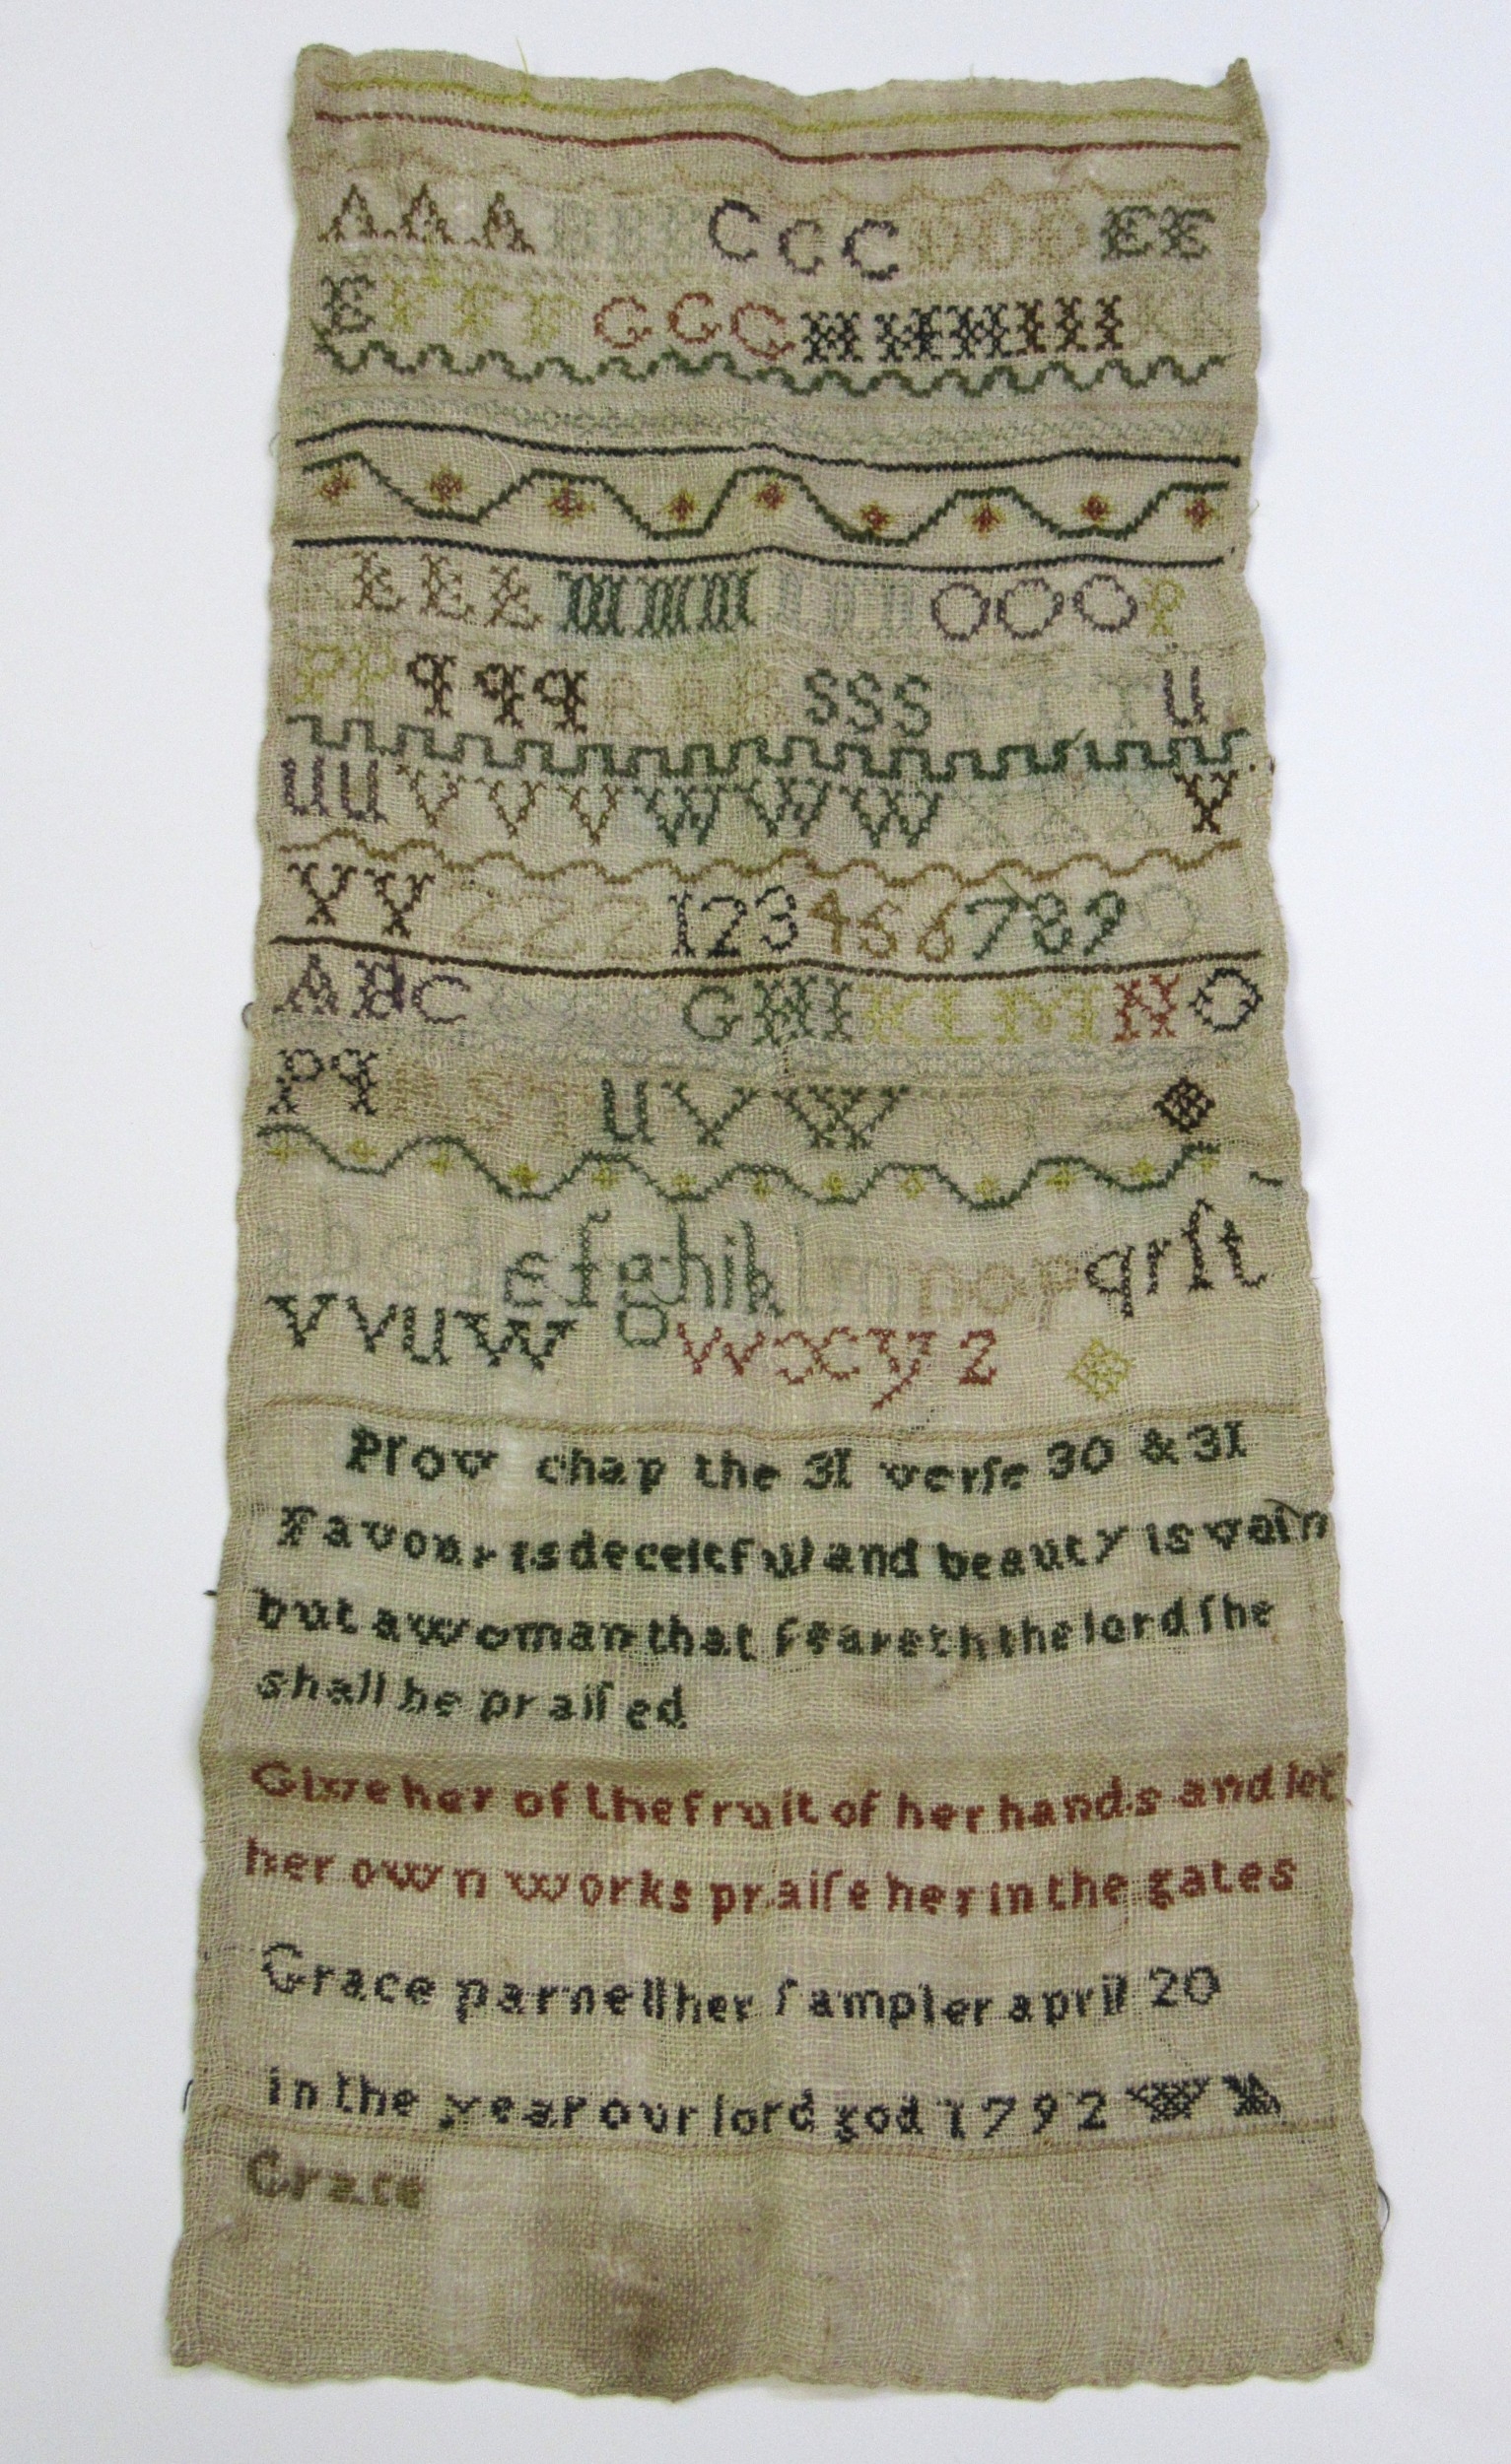 A A A B B B C C C D D D E E
E F F F G G G H H H I I I K K
L L L M M M n n n O O O P
P P q q q R R R S S S T T T u
u u V V V W W W X X X Y
Y Y Z Z Z 1 2 3 4 5 6 7 8 9 0
A B C D E F G H I K L M N O
P q R S T u V W X Y Z
a b c d e f g h i k l m n o p q r ſ t
V v u w g w x y z
Prov chap the 3I verſe 30 & 3I
Favour is deceitful and beauty is vain
but a woman that feareth the lord ſhe
shall be praiſed
Give her of the fruit of her hands and let
her own works praiſe her in the gates
Grace parnell her ſampler april 20
in the year our lord god 1792
Grace